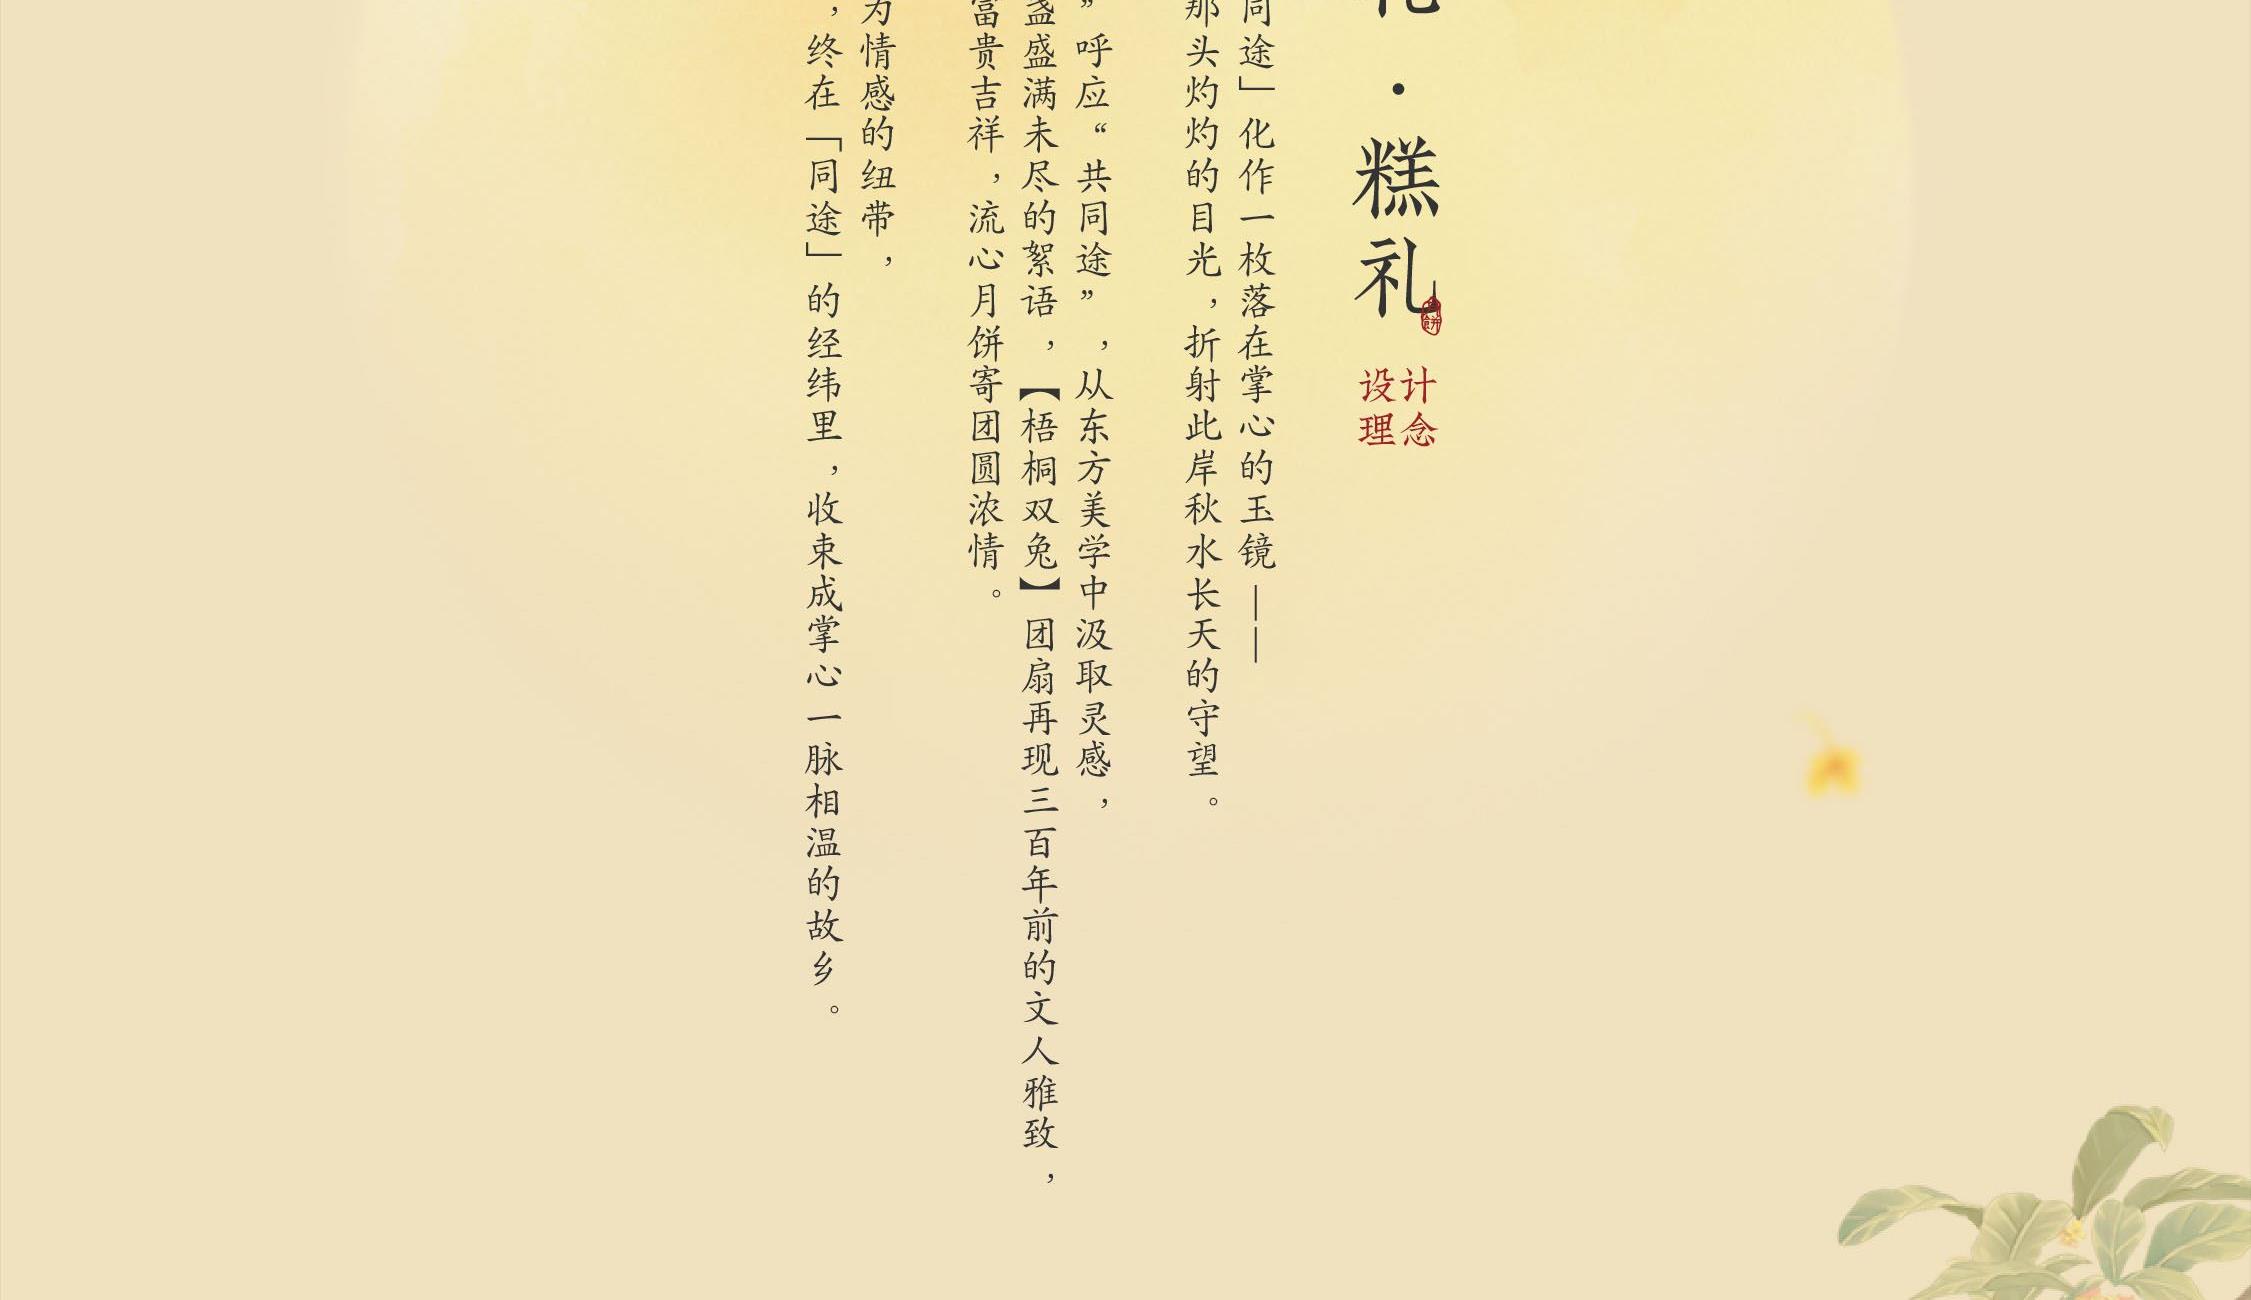 ·糕礼
月餅
设计
理念
同途」化作一枚落在掌心的玉镜——
那头灼灼的目光，折射此岸秋水长天的守望。
”呼应“共同途”，从东方美学中汲取灵感，
盏盛满未尽的絮语，【梧桐双兔】团扇再现三百年前的文人雅致，
富贵吉祥，流心月饼寄团圆浓情。
为情感的纽带，
，终在「同途」的经纬里，收束成掌心一脉相温的故乡。